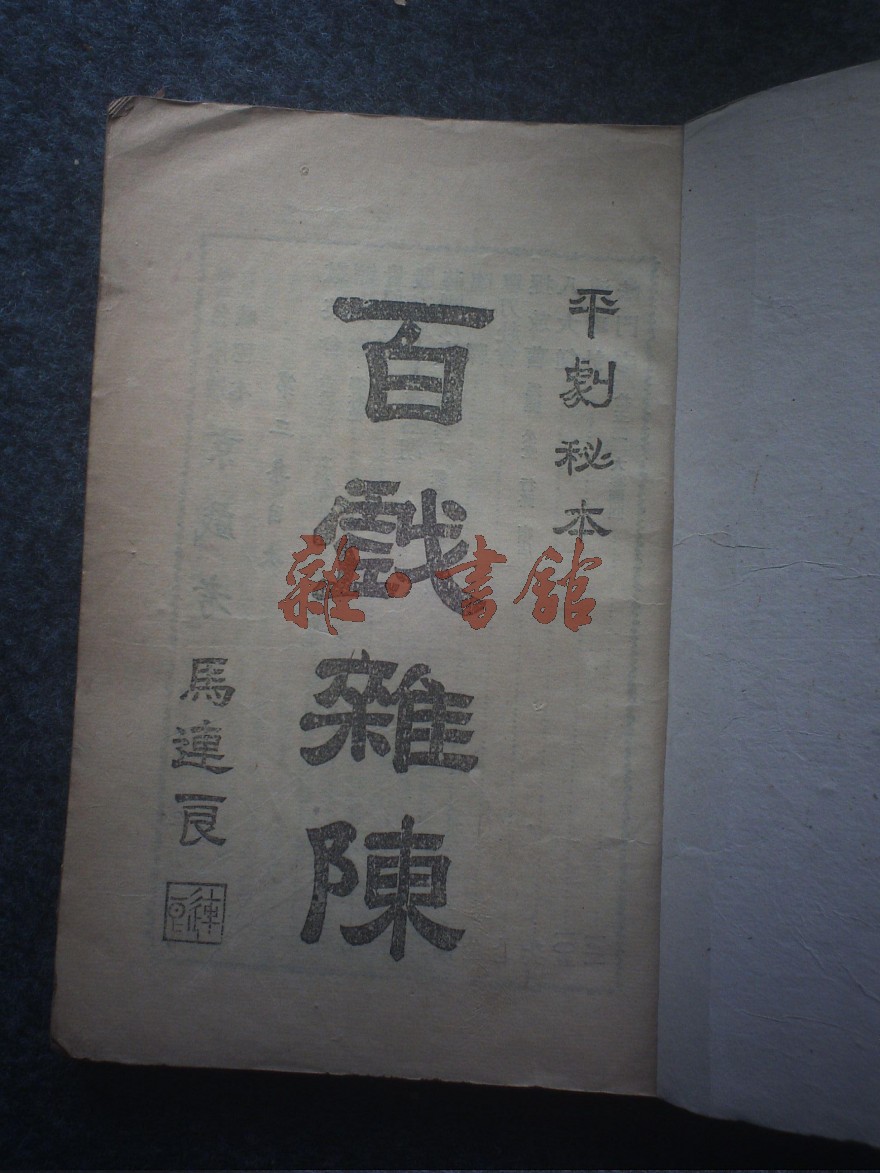 平劇秘本
百戲雜陳
馬連良
雜·書館